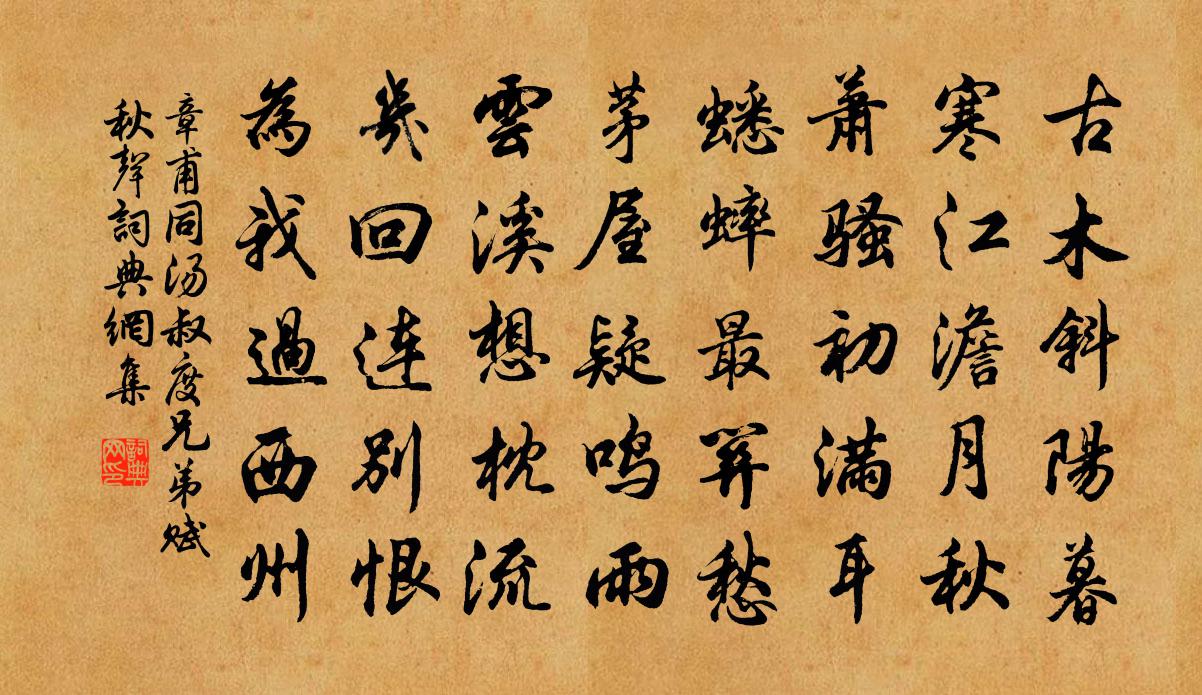 古木斜陽暮
寒江澹月秋
蕭騷初滿耳
蟋蟀最關愁
茅屋疑鳴雨
雲溪想枕流
幾回連別恨
為我過西州
章甫同汤叔度兄弟賦
秋聲詞典網集
詞典网印